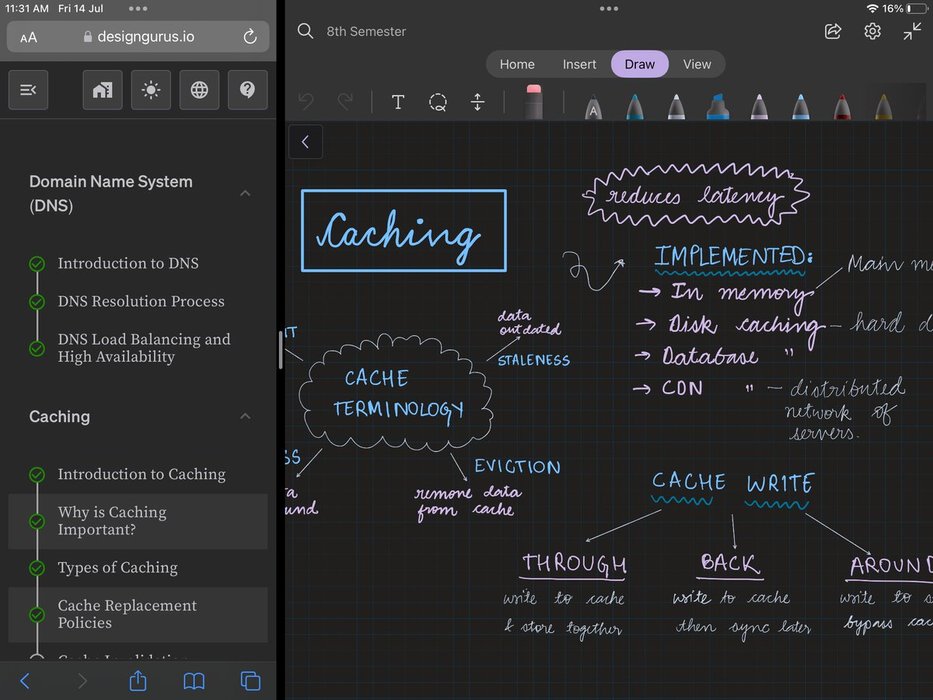 11:31 AM Fri 14 Jul
16%
AA designgurus.io
8th Semester
Home Insert Draw View
T
A
Domain Name System
(DNS)
Introduction to DNS
DNS Resolution Process
DNS Load Balancing and
High Availability
Caching
Introduction to Caching
Why is Caching
Important?
Types of Caching
Cache Replacement
Policies
Caching
reduces latency
IMPLEMENTED:
→ In memory
Main me
→ Disk caching - hard d
→ Database "
→ CDN " - distributed
network of
servers.
data
outdated
STALENESS
CACHE
TERMINOLOGY
IT
SS
ta
und
EVICTION
remone data
from cache
CACHE WRITE
THROUGH
write to cache
& store together
BACK
write to cache
then sync later
AROUND
write to s
bypass cac